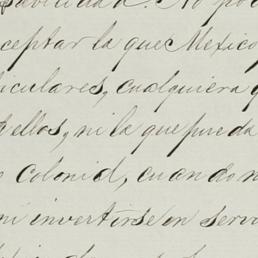 No po
ceptar la que Mexico
iculares, cualquiera q
ellos, ni la que pueda
Colonia, cuando n
ni invertirse en serv